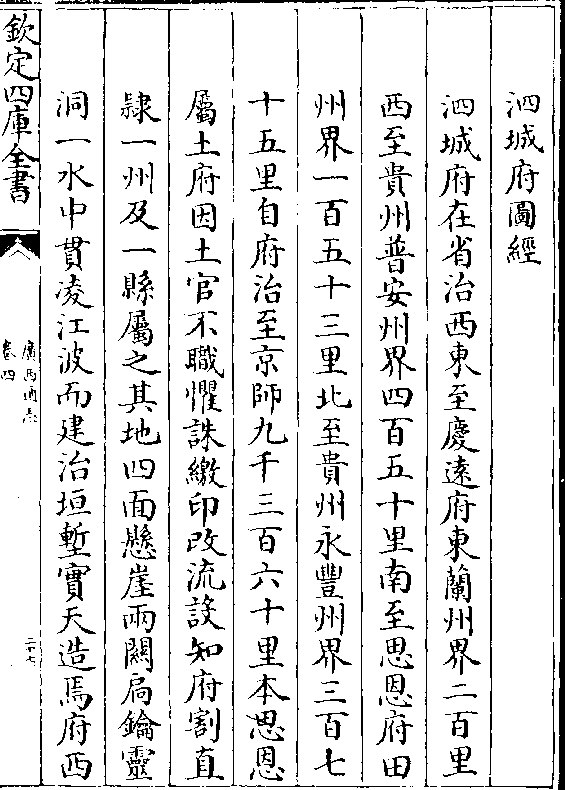 泗城府圖經
泗城府在省治西東至慶遠府東蘭州界二百里
西至貴州普安州界四百五十里南至思恩府田
州界一百五十三里北至貴州永豐州界三百七
十五里自府治至京師九千三百六十里本思恩
屬土府因土官不職懼誅繳印改流設知府割直
隸一州及一縣屬之其地四面懸崖兩闗扃鑰靈
洞一水中貫凌江波而建治垣塹實天造焉府西
欽定四庫全書
廣西通志
卷四
二十七